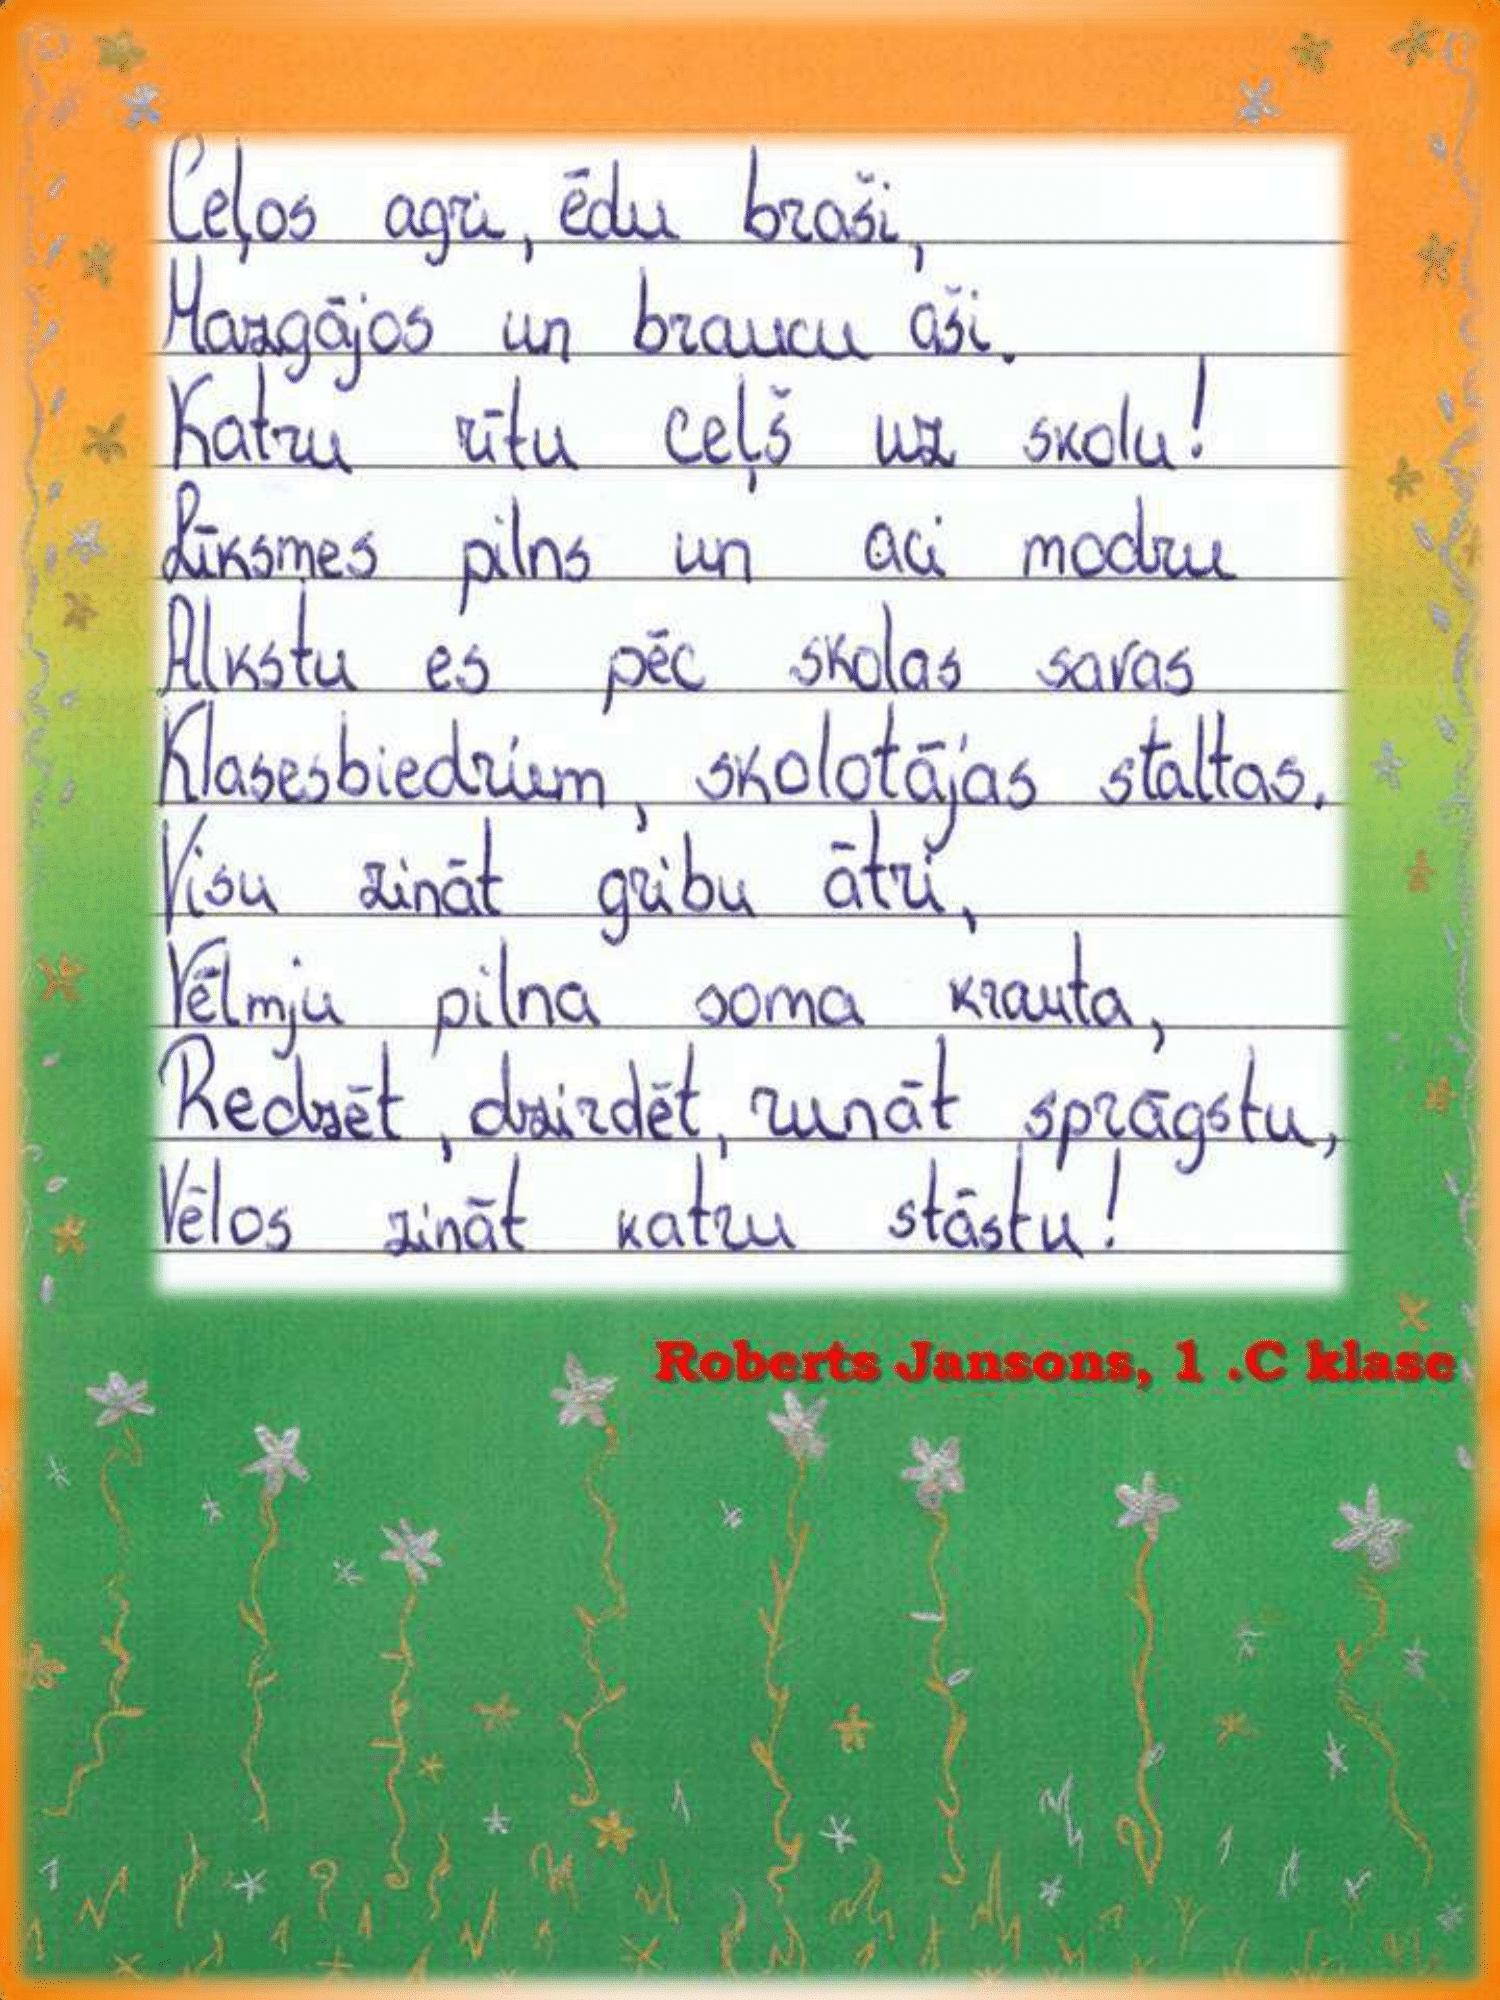 Ceļos agri, ēdu braši,
Mazgājos un braucu aši.
Katru rītu ceļš uz skolu!
Līksmes pilns un aci modru
Alkstu es pēc skolas savas
Klasesbiedriem, skolotājas staltas.
Visu zināt gribu ātri,
Vēlmju pilna soma krauta,
Redzēt, dzirdēt, runāt sprāgstu,
Vēlos zināt katru stāstu!
Roberts Jansons, 1 .C klase